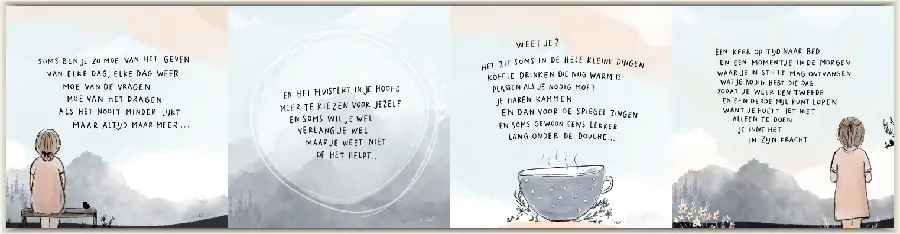 SOMS BEN JE ZO MOE VAN HET GEVEN
VAN ELKE DAG, ELKE DAG WEER
MOE VAN DE VRAGEN
MOE VAN HET DRAGEN
ALS HET NOOIT MINDER LIJKT
MAAR ALTYD MAAR MEER...
EN HET FLUISTERT IN JE HOOFD
MEER TE KIEZEN VOOR JEZELF
EN SOMS WIL JE WEL
VERLANG JE WEL
MAAR JE WEET NIET
OF HET HELPT..
WEET JE?
HET ZIT SOMS IN DE HELE KLEINE DINGEN
KOFFIE DRINKEN DIE NOG WARM IS
PLASSEN ALS JE NODIG MOET
JE HAREN KAMMEN
EN DAN VOOR DE SPIEGEL ZINGEN
EN SOMS GEWOON EENS LEKKER
LANG ONDER DE DOUCHE...
EEN KEER OP TIJD NAAR BED
EN EEN MOMENTJE IN DE MORGEN
WAAR JE IN STILTE MAG ONTVANGEN
WAT JE NODIG HEBT DIE DAG
ZODAT JE WEER EEN TWEEDE
EN EEN DERDE MIJL KUNT LOPEN
WANT JE HOEFT HET NIET
ALLEEN TE DOEN
JE KUNT HET
IN ZIJN KRACHT